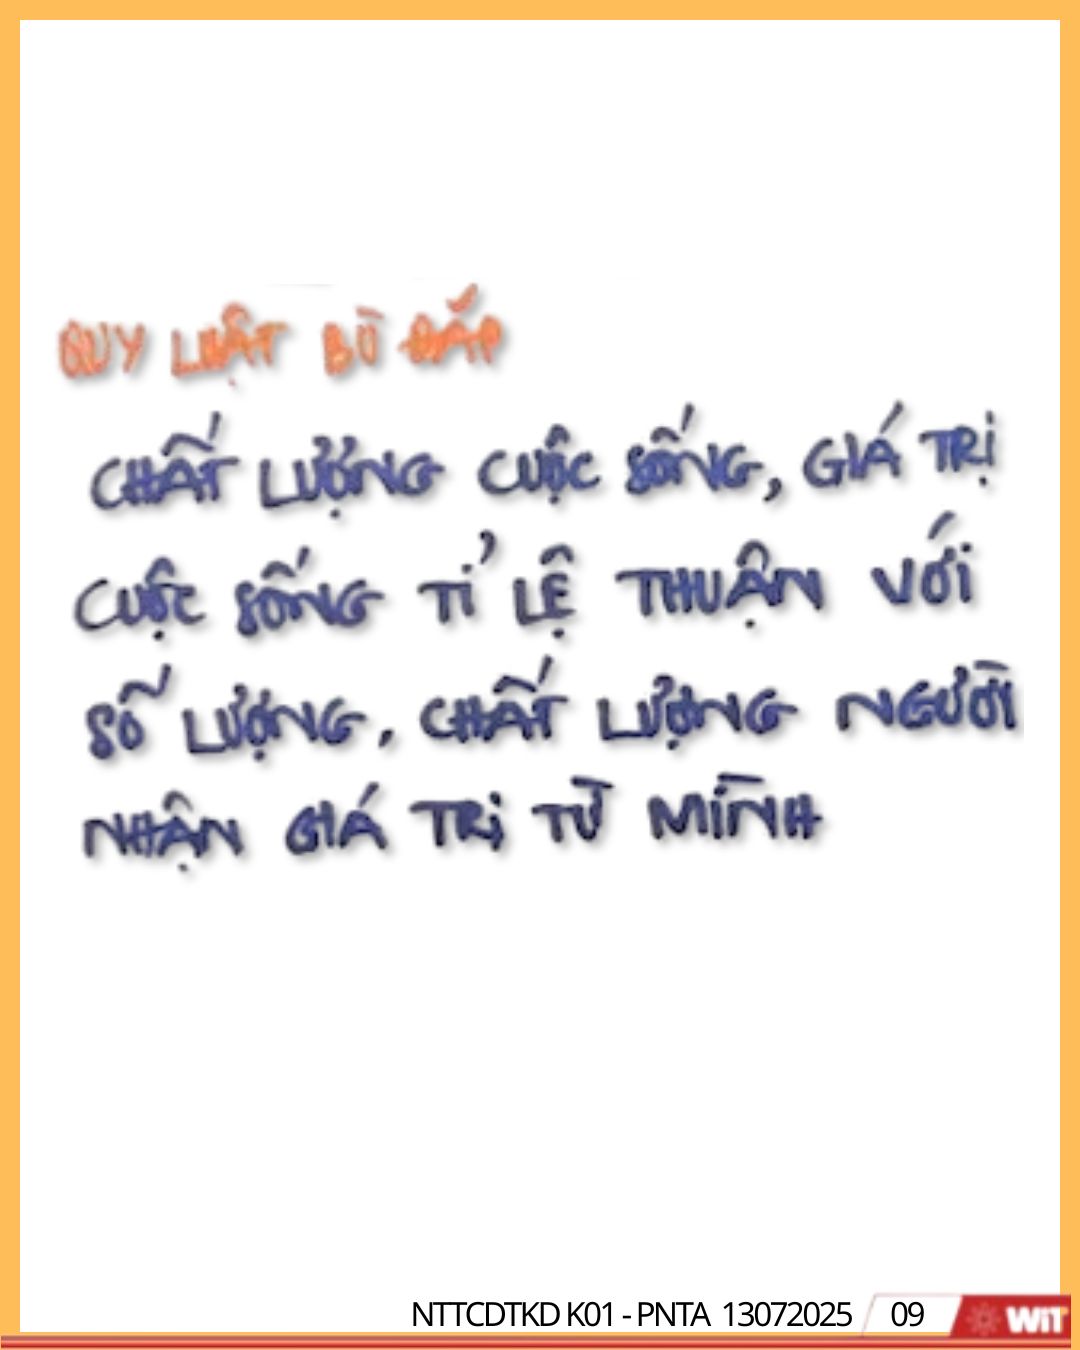 QUY LUẬT BÙ ĐẮP
CHẤT LƯỢNG CUỘC SỐNG, GIÁ TRỊ
CUỘC SỐNG TỈ LỆ THUẬN VỚI
SỐ LƯỢNG, CHẤT LƯỢNG NGƯỜI
NHẬN GIÁ TRỊ TỪ MÌNH
NTTCDTKD K01 - PNTA 13072025 09 WiT